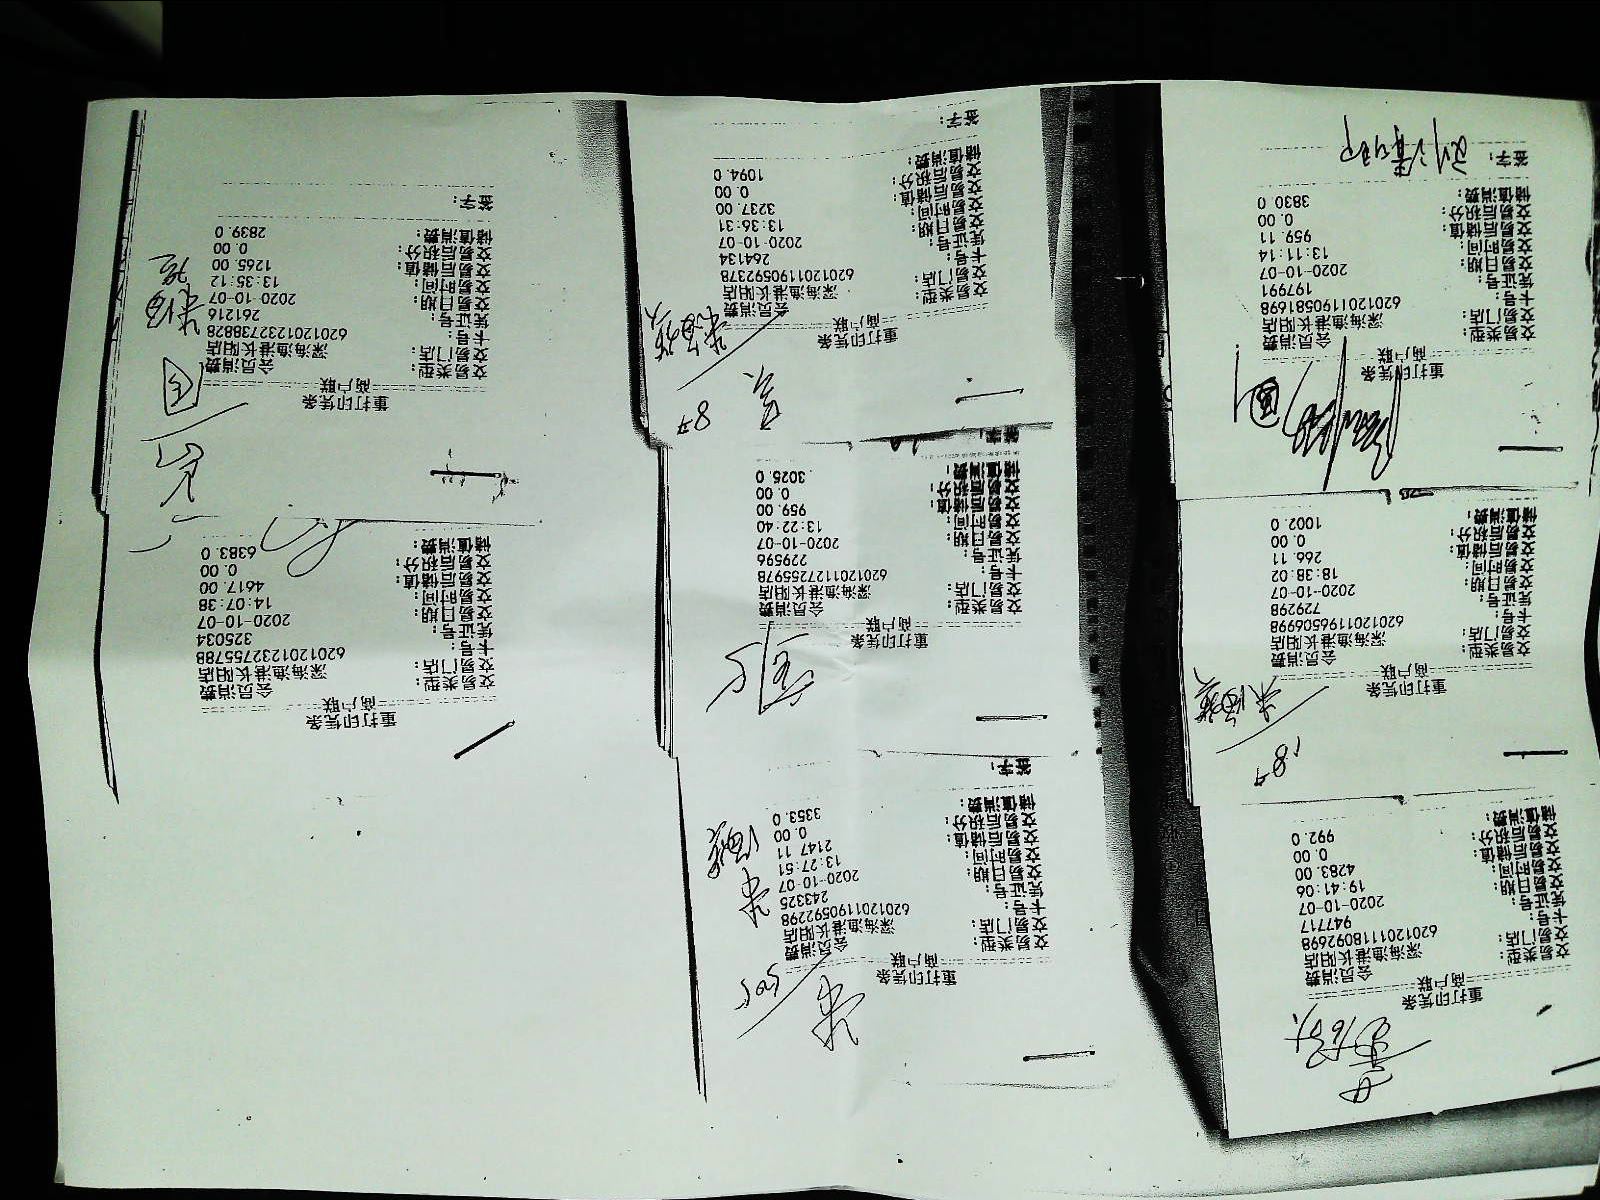 重打印凭条
商户联
交易类型: 会员消费
交易门店: 深海渔港长阳店
卡号: 6201201118092698
凭证号: 947717
交易日期: 2020-10-07
交易时间: 19:41:06
交易后储值: 4283.00
交易后积分: 0.00
储值消费: 992.0
187
重打印凭条
商户联
交易类型: 会员消费
交易门店: 深海渔港长阳店
卡号: 6201201196506998
凭证号: 729298
交易日期: 2020-10-07
交易时间: 18:38:02
交易后储值: 266.11
交易后积分: 0.00
储值消费: 1002.0
重打印凭条
商户联
交易类型: 会员消费
交易门店: 深海渔港长阳店
卡号: 6201201190581698
凭证号: 197991
交易日期: 2020-10-07
交易时间: 13:11:14
交易后储值: 959.11
交易后积分: 0.00
储值消费: 3830.0
签字:
重打印凭条
商户联
交易类型: 会员消费
交易门店: 深海渔港长阳店
卡号: 6201201190592298
凭证号: 243325
交易日期: 2020-10-07
交易时间: 13:27:51
交易后储值: 2147.11
交易后积分: 0.00
储值消费: 3353.0
签字:
重打印凭条
商户联
交易类型: 会员消费
交易门店: 深海渔港长阳店
卡号: 6201201127255978
凭证号: 229596
交易日期: 2020-10-07
交易时间: 13:22:40
交易后储值: 959.00
交易后积分: 0.00
储值消费: 3025.0
签字:
重打印凭条
商户联
交易类型: 会员消费
交易门店: 深海渔港长阳店
卡号: 6201201190592378
凭证号: 264134
交易日期: 2020-10-07
交易时间: 13:36:31
交易后储值: 3237.00
交易后积分: 0.00
储值消费: 1094.0
签字:
重打印凭条
商户联
交易类型: 会员消费
交易门店: 深海渔港长阳店
卡号: 6201201232755788
凭证号: 325034
交易日期: 2020-10-07
交易时间: 14:07:38
交易后储值: 4617.00
交易后积分: 0.00
储值消费: 6383.0
重打印凭条
商户联
交易类型: 会员消费
交易门店: 深海渔港长阳店
卡号: 6201201232738828
凭证号: 261216
交易日期: 2020-10-07
交易时间: 13:35:12
交易后储值: 1265.00
交易后积分: 0.00
储值消费: 2839.0
签字: